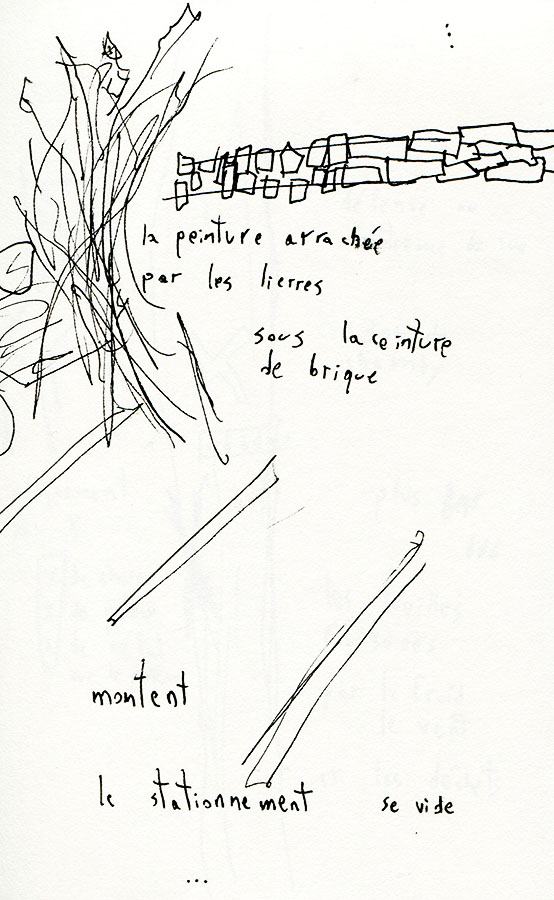 la peinture arrachée
par les lierres
sous la ceinture
de brique
montent
le stationnement se vide
...